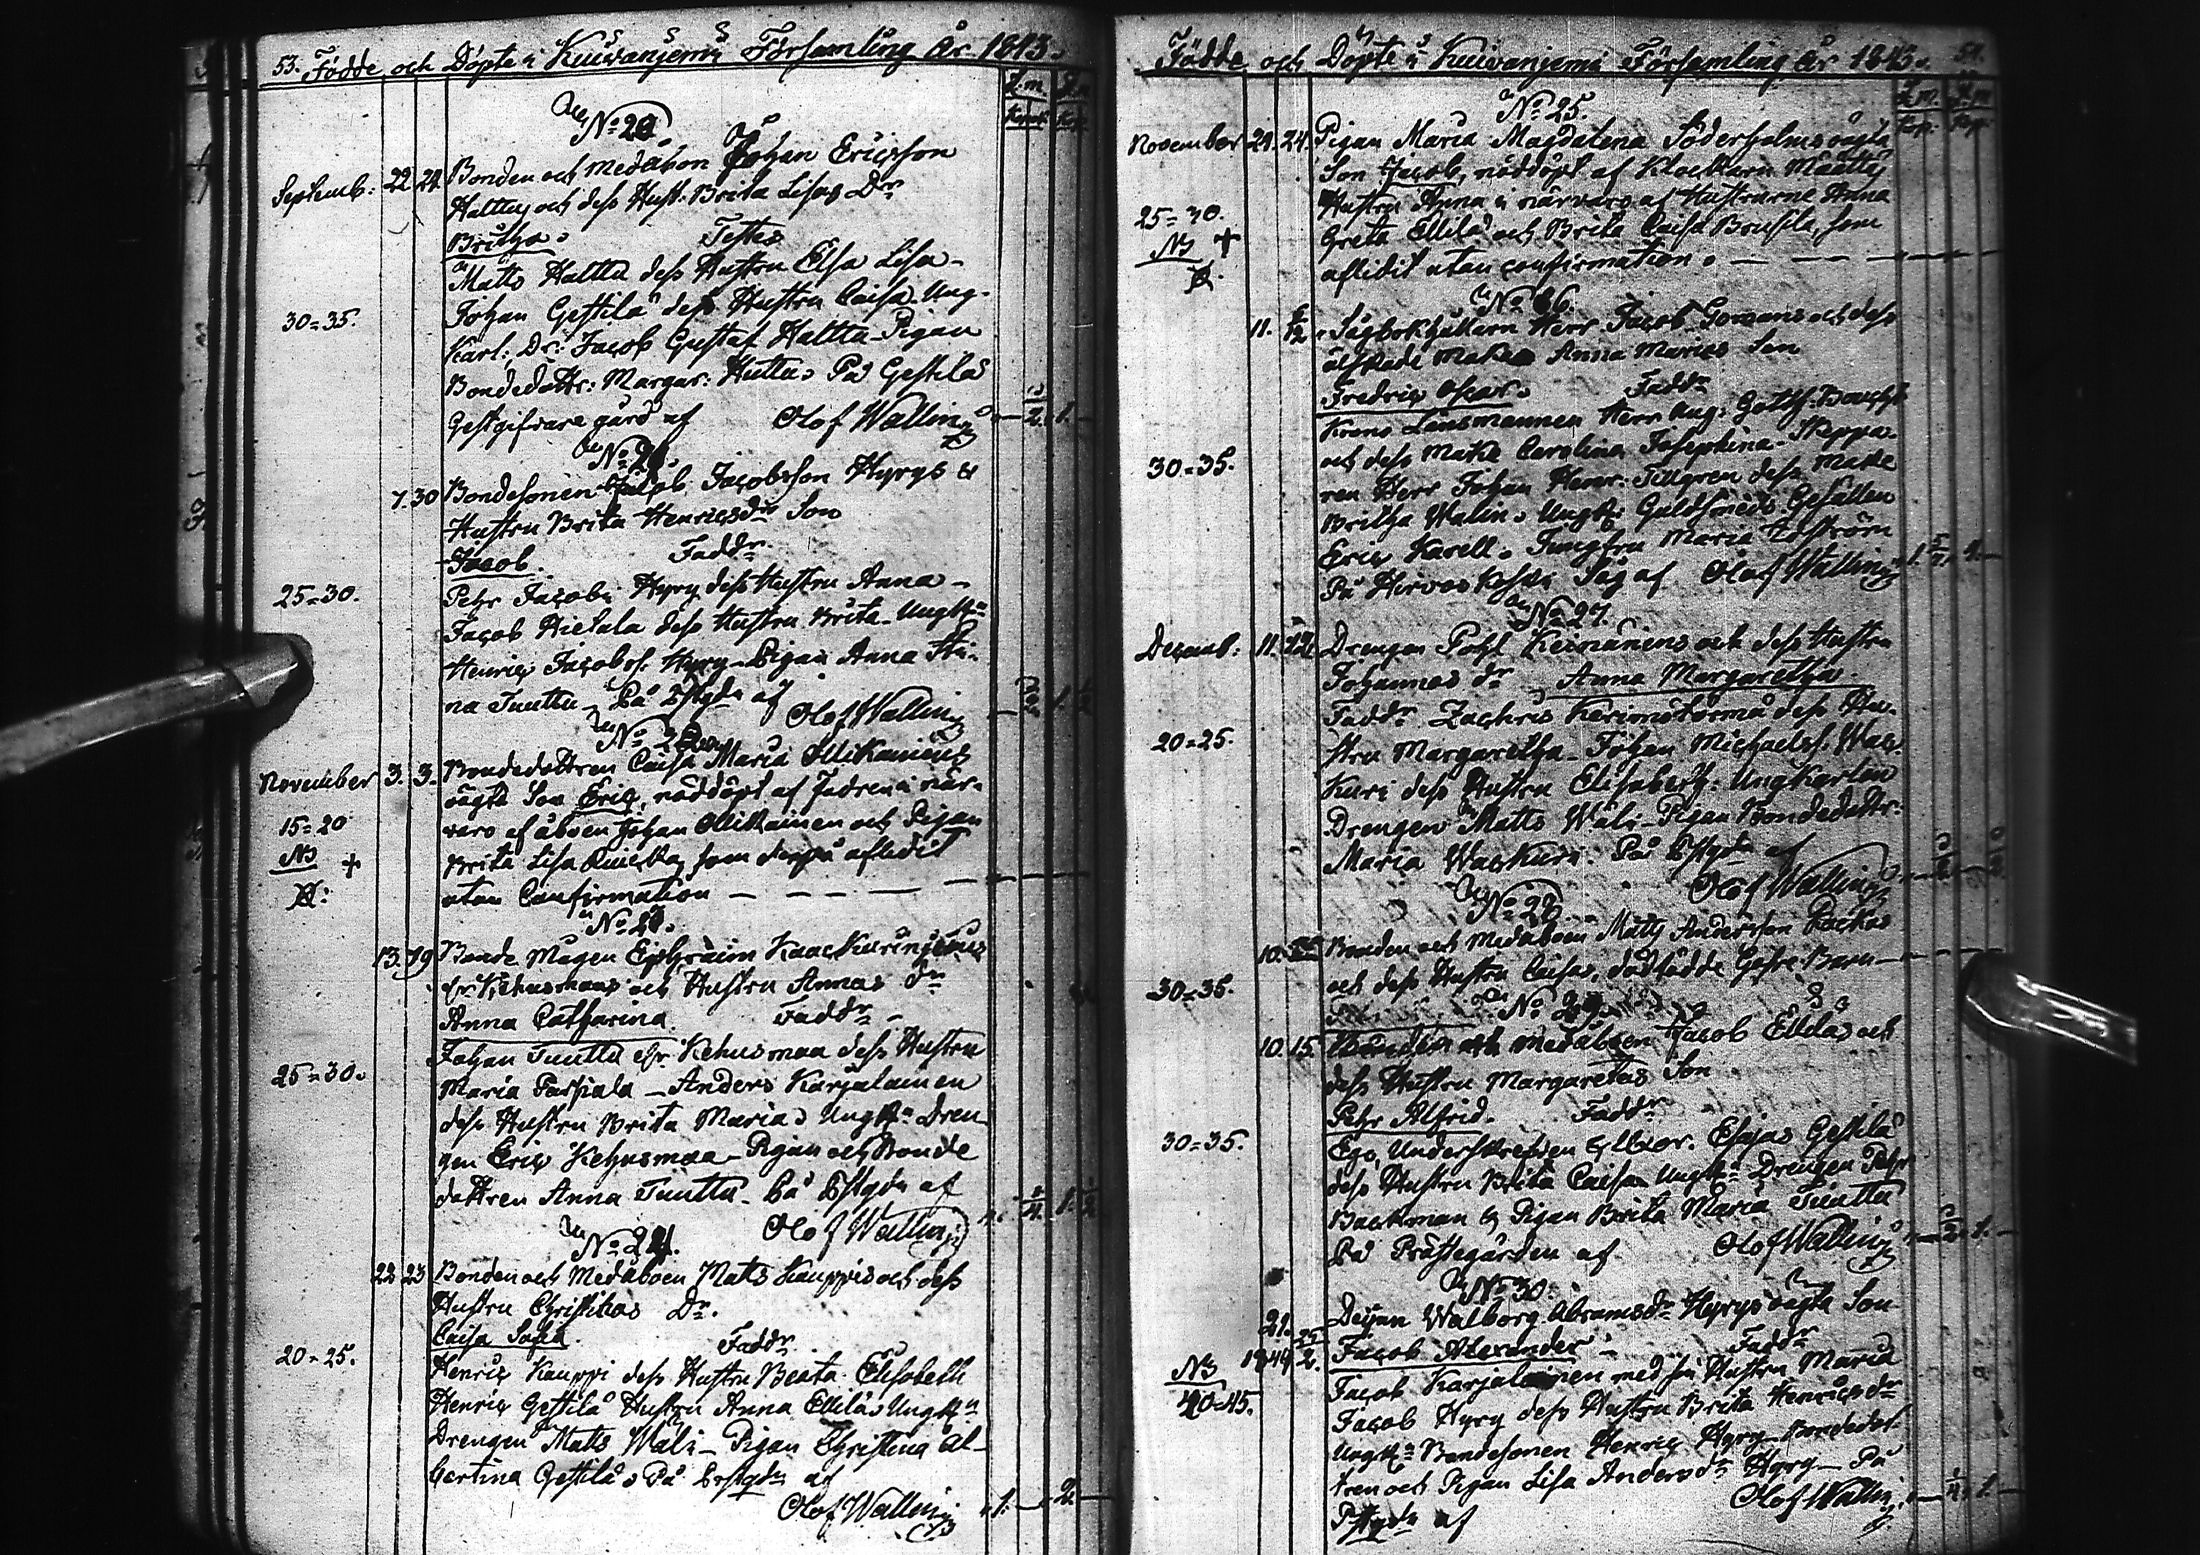 53. Födde och Döpte i Kuivaniemi Församling År 1843.
S.m. S.m
Kop. Kop.
No 20
Septemb: 22 24 Bonden och Medåbon Johan Ericsson
Haltta och dess Hust. Brita Lisas Dr
Britha. Testes
Matts Haltta dess Hustru Elsa Lisa
30=35. Johan Gestilä dess Hustru Caisa Ung-
Karl: Dr: Jacob Gustaf Haltta Pigan
Bondedottr: Margar: Hutta. På Gestilä
Gestgifvare gård af Olof Wallin 2 1
No 21.
7. 30 Bondesonen Jacob Jacobsson Hyrys &
Hustru Brita Henricsdr Son
Jacob. Faddr
25=30. Pehr Jacobs: Hyry dess Hustru Anna
Jacob Hietala dess Hustru Brita Ungk
Henric Jacobss. Hyry Pigan Anna
na Tuuttu På Pstgdn af
Olof Wallin
No 22
November 3. 3. Bondedottren Caisa Maria Ollikainens
oägta Son Eric, nöddöpt af Fadren i när-
15=20 varo af åboen Johan Ollikainen och Pigan
NB + Brita Lisa som derpå aflidit
utan Confirmation
No 23.
13. 19 Bonde Mågen Ephraim Kaackuriniemis
fr. Kehusmaas och Hustru Annas Dr
Anna Catharina. Faddr
Johan Tuuttu fr Kehusmaa dess Hustru
25=30. Maria Anders Karjalainen
dess Hustru Brita Maria. Ungk Dren
gen Eric Kehusmaa Pigan och Bonde
dottren Anna Tuuttu. På Pstgdn af
Olof Wallin
No 24.
22 23 Bonden och Medåboen Mats Kauppis och dess
Hustru Christinas Dr.
Caisa Sofia. Faddr
20=25. Henric Kauppi dess Hustru Beata Elisabeth
Henric Gestilä Hustru Anna Ellilä. Ungk
Drengen Mats Wäli Pigan Christina Al-
bertina Gestilä. På Prstgdn af
Olof Wallin 1. 2
Födde och Döpte i Kuivaniemi Församling år 1843. 54.
No 25.
November 24. 24. Pigan Maria Magdalena Söderholms oägta
Son Jacob, nöddöpt af Klockarn Määttäs
25=30. Hustru Anna i närvaro af Hustrurne Anna
NB + Greta Ellilä och Brita Caisa Brusila, som
aflidit utan confirmation.
No 26.
11. Sågbokhållarn Herr Jacob Gomans och dess
älskade Makas Anna Marias Son
Fredric Oscar. Faddr
Krono Länsmannen Herr Aug: Gottf.
och dess Maka Carolina Josephina Skeppa-
30=35. ren Herr Johan Henr: Tillgren dess Maka
Britha Walin. Ungk: Guldsmeds Gesällen
Eric Karell. Jungfru Maria
På Hirvaskoski Såg af Olof Wallin
No 27.
Decemb: 11. Drengen Pohl Keinänens och dess Hustru
Johannas dr Anna Margaretha.
Faddr. Zachris dess Hu-
20=25. stru Margaretha Johan Michaelss. Wac
kuri dess Hustru Elisabeth: Ungkarlen
Drengen Matts Wäli Pigan Bondedottr:
Maria Wackuri. På Pstgdn af
Olof Wallin
No 28
10. Bonden och Medåboen Matts Andersson
30=35. och dess Hustru Caisas, dödfödde Gosse Barn
No 29
10. 15. Bonden och Medåboen Jacob Elliläs och
dess Hustru Margaretas Son
Pehr Alfrid. Faddr
30=35. Ego, Underskrefven & Uxor. Esajas Gestilä
dess Hustru Brita Caisa Ungk Drengen Pehr
Backman & Pigan Brita Maria Tuuttu
På Prästegården af Olof Wallin
No 30.
21. Deijan Walborg Abramsdr Hyrys oägta Son
1844 Jacob Alexander Faddr
NB Jacob Karjalainen med sin Hustru Maria
40=45. Jacob Hyry dess Hustru Brita Henricsdr
Ungk Bondesonen Henric Hyry Bondedot
tren och Pigan Lisa Andersdr Hyry På
Pstgdn af Olof Wallin